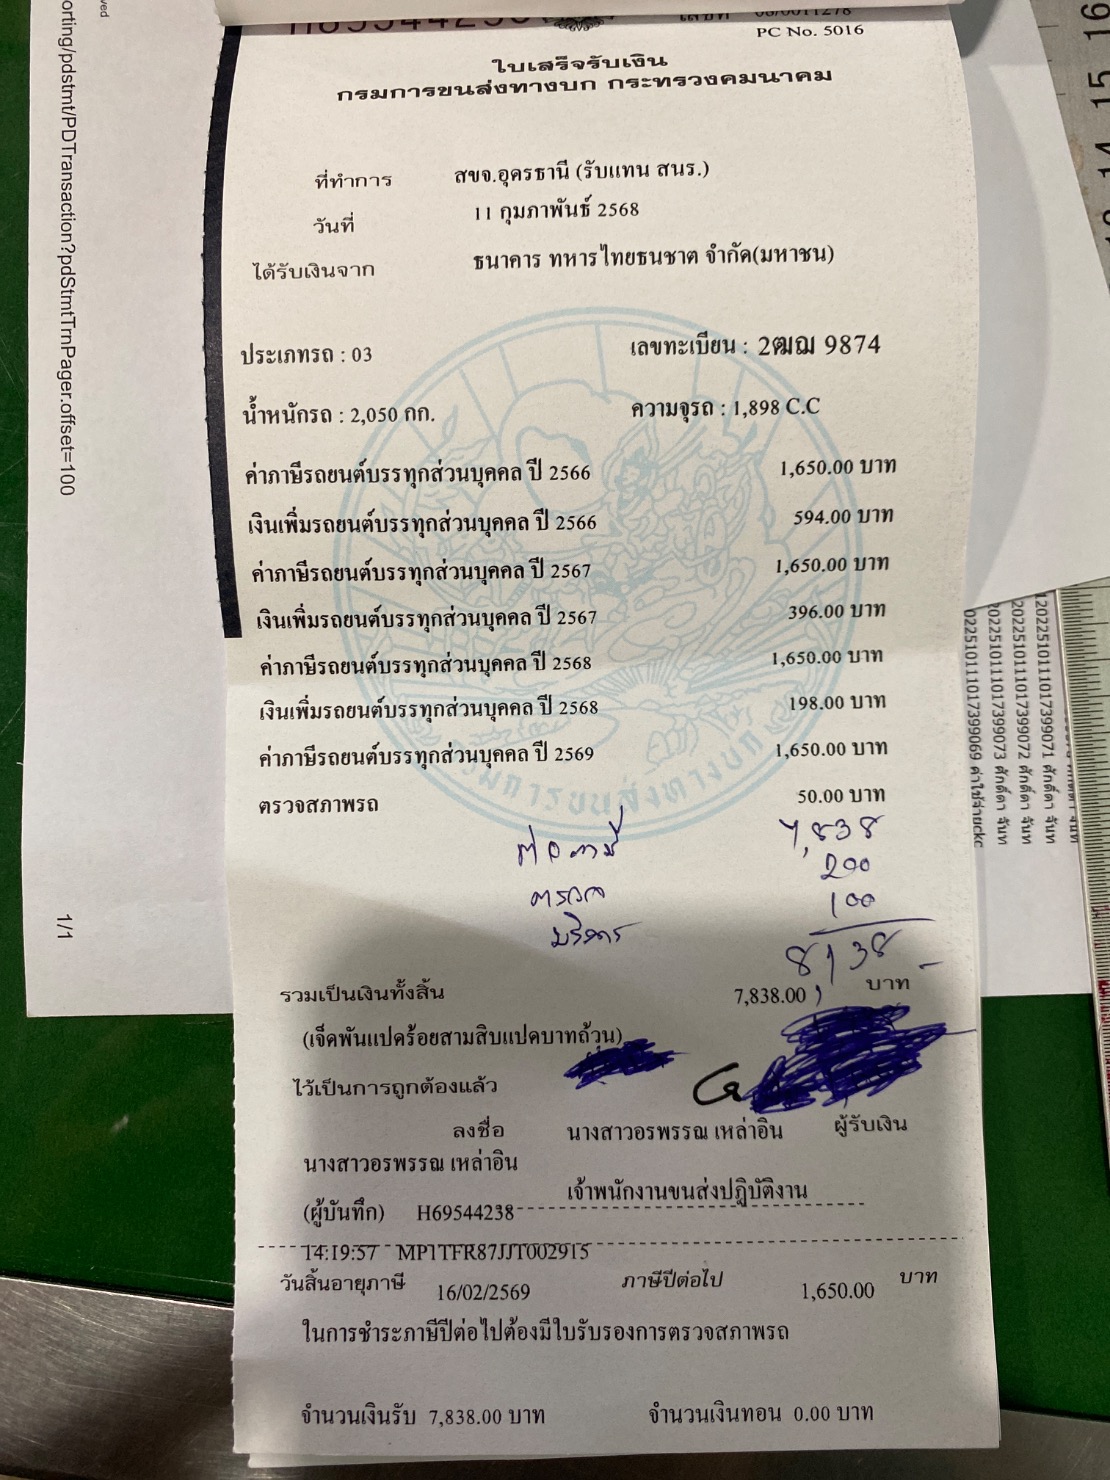 เลขที่
PC No. 5016
ใบเสร็จรับเงิน
กรมการขนส่งทางบก กระทรวงคมนาคม
ที่ทำการ สขจ.อุดรธานี (รับแทน สนร.)
วันที่ 11 กุมภาพันธ์ 2568
ได้รับเงินจาก ธนาคาร ทหารไทยธนชาต จำกัด(มหาชน)
ประเภทรถ : 03 เลขทะเบียน : 2ฒฌ 9874
น้ำหนักรถ : 2,050 กก. ความจุรถ : 1,898 C.C
ค่าภาษีรถยนต์บรรทุกส่วนบุคคล ปี 2566 1,650.00 บาท
เงินเพิ่มรถยนต์บรรทุกส่วนบุคคล ปี 2566 594.00 บาท
ค่าภาษีรถยนต์บรรทุกส่วนบุคคล ปี 2567 1,650.00 บาท
เงินเพิ่มรถยนต์บรรทุกส่วนบุคคล ปี 2567 396.00 บาท
ค่าภาษีรถยนต์บรรทุกส่วนบุคคล ปี 2568 1,650.00 บาท
เงินเพิ่มรถยนต์บรรทุกส่วนบุคคล ปี 2568 198.00 บาท
ค่าภาษีรถยนต์บรรทุกส่วนบุคคล ปี 2569 1,650.00 บาท
ตรวจสภาพรถ 50.00 บาท
กรมการขนส่งทางบก
ต่อภาษี 7,838
ตรวจ 200
บริการ 100
8,138 -
รวมเป็นเงินทั้งสิ้น 7,838.00 บาท
(เจ็ดพันแปดร้อยสามสิบแปดบาทถ้วน)
ไว้เป็นการถูกต้องแล้ว
ลงชื่อ นางสาวอรพรรณ เหล่าอิน ผู้รับเงิน
นางสาวอรพรรณ เหล่าอิน
เจ้าพนักงานขนส่งปฏิบัติงาน
(ผู้บันทึก) H69544238
14:19:57 MP1TFR87JJT002915
วันสิ้นอายุภาษี 16/02/2569 ภาษีปีต่อไป 1,650.00 บาท
ในการชำระภาษีปีต่อไปต้องมีใบรับรองการตรวจสภาพรถ
จำนวนเงินรับ 7,838.00 บาท จำนวนเงินทอน 0.00 บาท
orting/pdstmt/PDTransaction?pdStmtTrnPager.offset=100
1/1
1202251011101739907​1 ศักดิ์ดา จันท
20225101110173990​72 ศักดิ์ดา จันท
20225101110173990​73 ศักดิ์ดา จันท
022510111017399069 ค่าใช้จ่ายckc
14 15 16